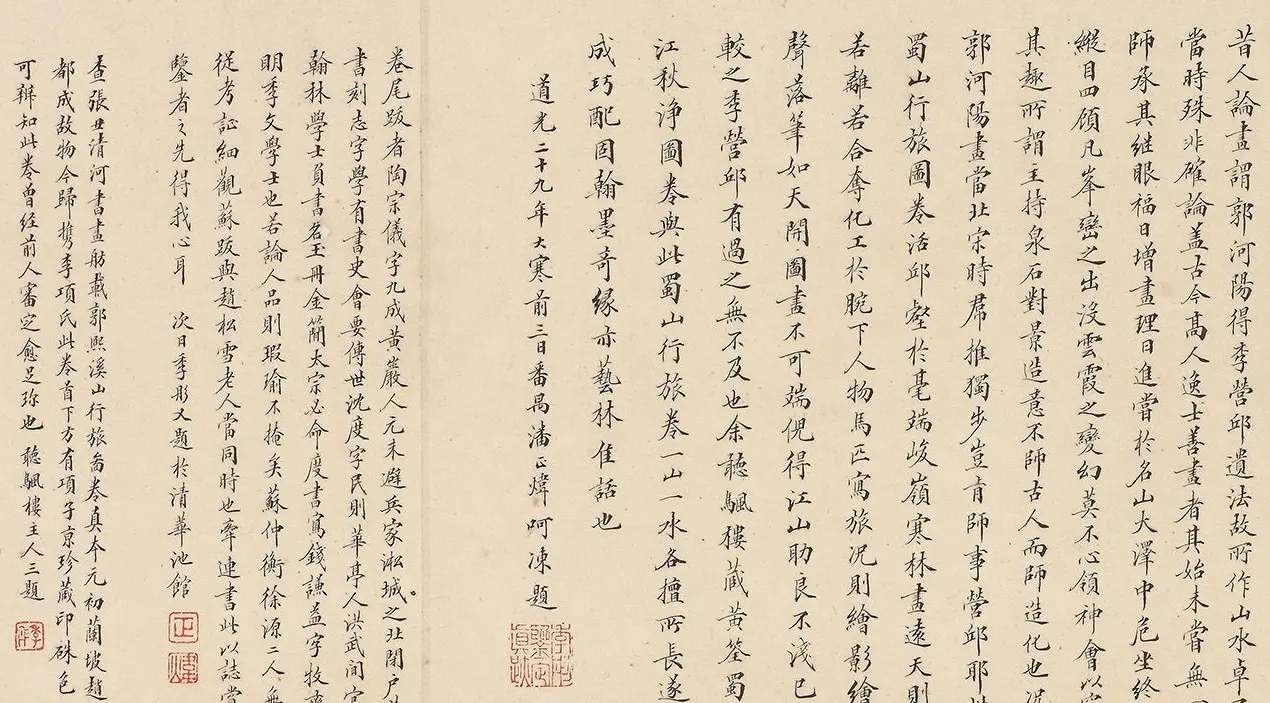 昔人論畫謂郭河陽得李營邱遺法故所作山水卓
當時殊非確論盖古今高人逸士善畫者其始未嘗無
師承其继眼福日增畫理日進嘗於名山大澤中危坐終
縱目四顧凡峯巒之出沒雲霞之變幻莫不心領神會以
其趣所謂主持泉石對景造意不師古人而師造化也况
郭河陽畫當北宋時群推獨步豈肯師事營邱耶
蜀山行旅圖卷活邱壑於毫端峻嶺寒林畫遠天則
若離若合奪化工於腕下人物馬匹寫旅况則繪影繪
聲落筆如天開圖畫不可端倪得江山助良不淺已
較之李營邱有過之無不及也余聽颿樓蔵黃筌蜀
江秋淨圖卷與此蜀山行旅卷一山一水各擅所長遂
成巧配固翰墨奇缘亦藝林佳話也
道光二十九年大寒前三日番禺潘正煒呵凍題
季彤鑒定真跡
卷尾跋者陶宗儀字九成黃巖人元末避兵家淞城之北閉戶
書刻志字學有書史會要傳世沈度字民則華亭人洪武间
翰林學士員書名玉冊金簡太宗必命度書寫錢謙益字牧
明季文學士也若論人品則瑕瑜不掩矣蘇仲衡徐源二人無
從考証細觀蘇跋與趙松雪老人當同時也牽連書此以誌當
鑒者之先得我心耳 次日季彤又題於清華池館
正煒
查張丑清河書畫舫載郭熙溪山行旅畣卷真本元初蘭坡趙
都成故物今歸檇李項氏此卷首下方有項子京珍蔵印硃色
可辨知此卷曾經前人審定愈足珎也 聽颿樓主人三題
季彤